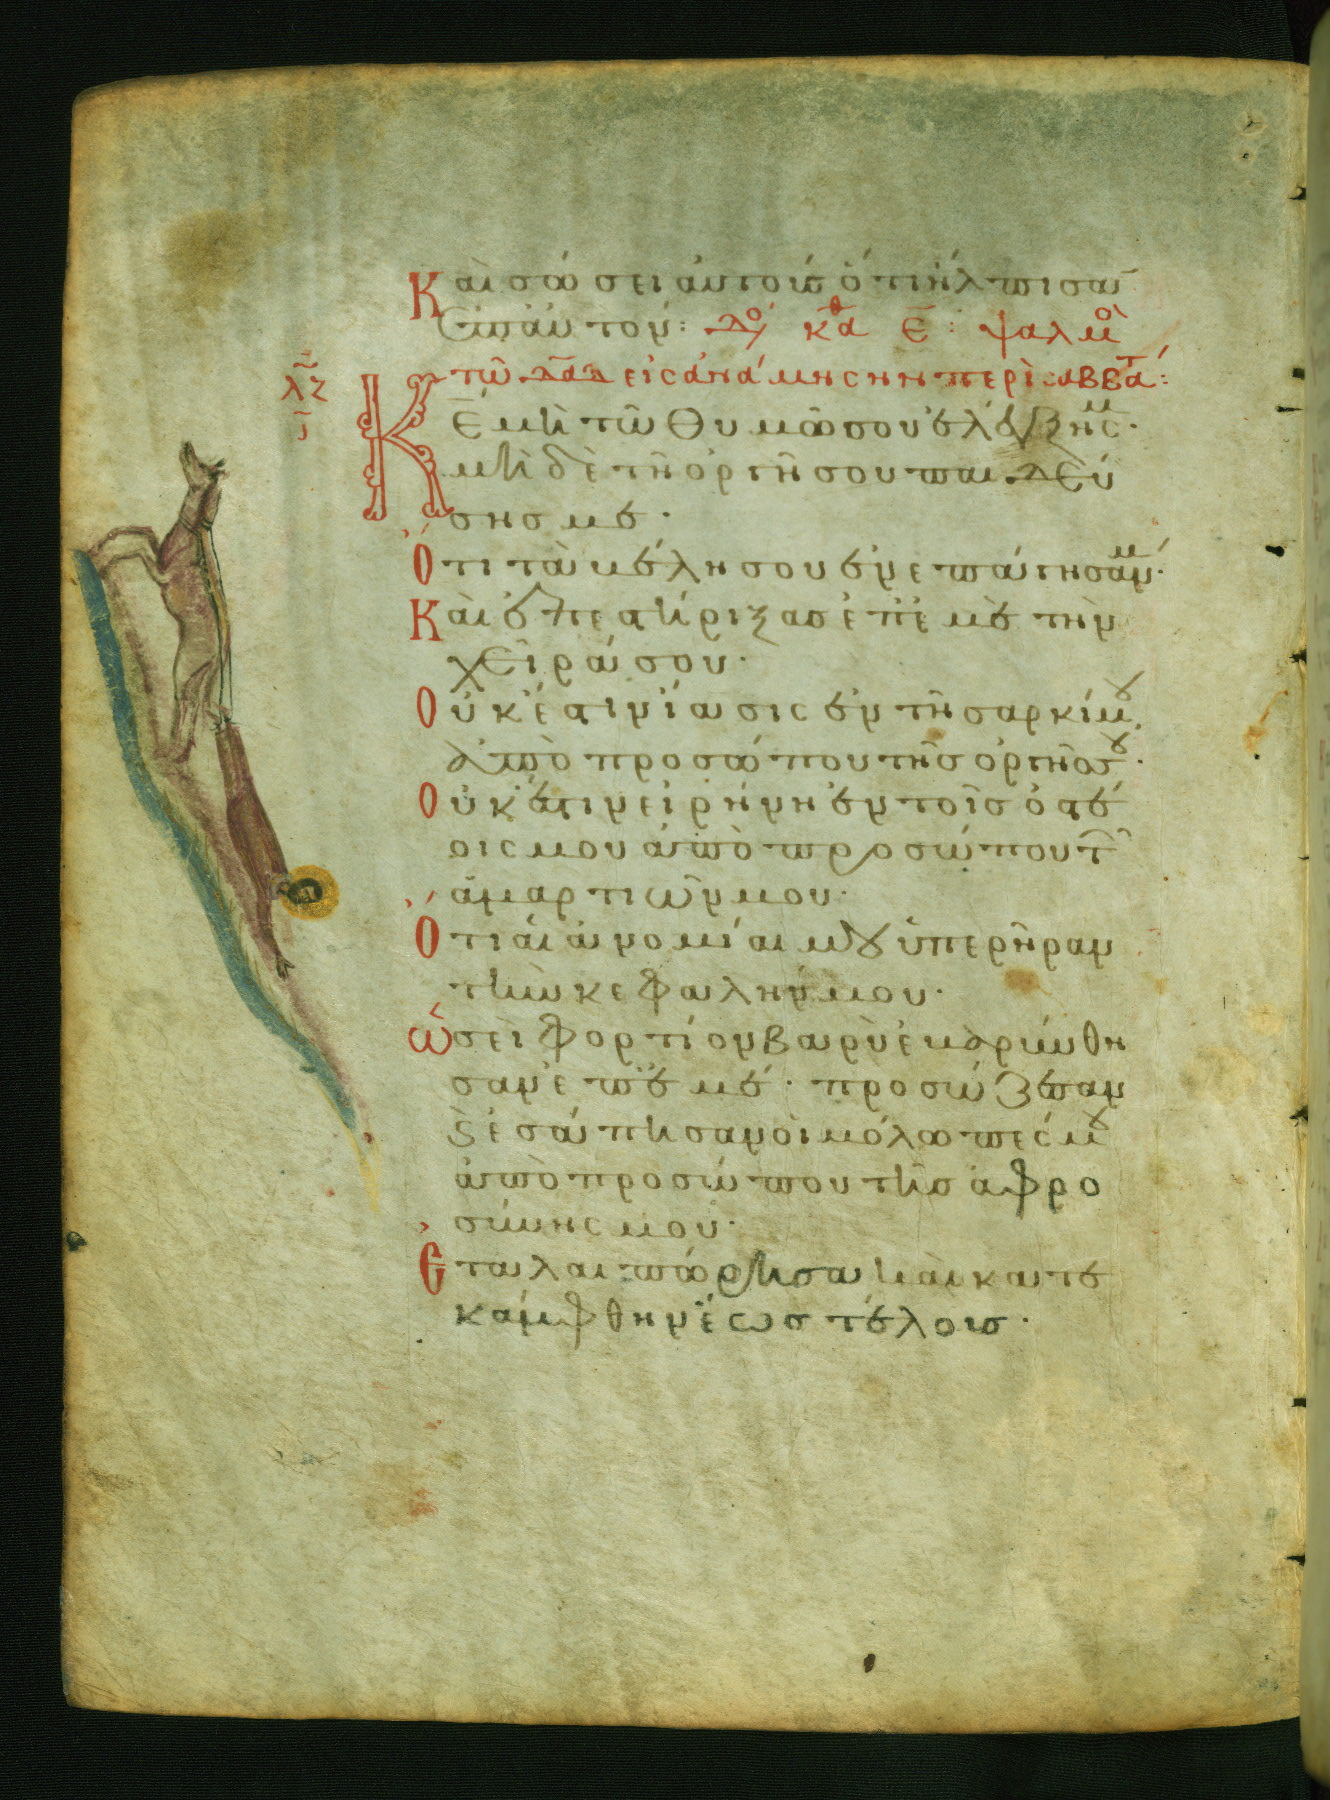 Καὶ σώσει αὐτοὺς ὅτι ἤλπισαν
ἐπ αὐτόν: ψαλμὸ
λζ
τῶ δᾱδ εἰς ἀνάμνησην περὶ σαββάτ:
Κ̅Ε̅ μὴ τῶ θυμῶ σου ἐλέγξης μ·
μὴ δὲ τῆ ὀργῆ σου παιδεύ
σης με·
Ὅτι τὰ βέλη σου ἐνεπάγησάν μ·
Καὶ ἐπεστήριξας ἐπ ἐμὲ τὴν
χεῖρά σου·
Οὐκ ἔστιν ἴασις ἐν τῆ σαρκί μου
ἀπὸ προσώπου τῆς ὀργῆς σου·
Οὐκ ἔστιν εἰρήνη ἐν τοῖς ὀστέ
οις μου ἀπὸ προσώπου τ
ἁμαρτιῶν μου·
Ὅτι αἱ ἀνομίαι μου ὑπερῆραν
τὴν κεφαλήν μου·
ὡσεὶ φορτίον βαρὺ ἐβαρύνθη
σαν ἐπ ἐμέ· προσώζεσαν
ϗ ἐσάπησαν οἱ μόλωπές μου
ἀπὸ προσώπου τῆς ἀφρο
σύνης μου·
Ἐταλαιπώρησα καὶ κατε
κάμφθην ἕως τέλους·